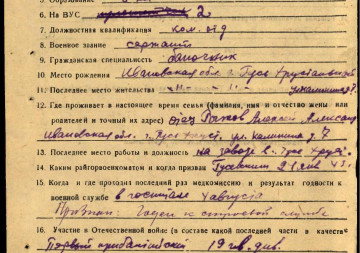 5. Образование
6. На ВУС 2
7. Должностная квалификация ком. отд
8. Военное звание сержант
9. Гражданская специальность
10. Место рождения Ивановская обл. г. Гусь Хрустальный
11. Последнее место жительства -"- -"-
12. Где проживает в настоящее время семья (фамилия, имя и отчество жены или
родителей и точный их адрес) отец Алексей
Ивановская обл. г. Гусь Хруст. ул. Калинина д. 7
13. Последнее место работы и должность на заводе в г. Гусь Хруст.
14. Каким райгорвоенкоматом и когда призван Гусевским
15. Когда и где проходил последний раз медкомиссию и результат годности к
военной службе в госпитале 4 августа
Признан: Годен к строевой службе
16. Участие в Отечественной войне (в составе какой последней части и в качестве
Первый прибалтийский 19 гв. див.